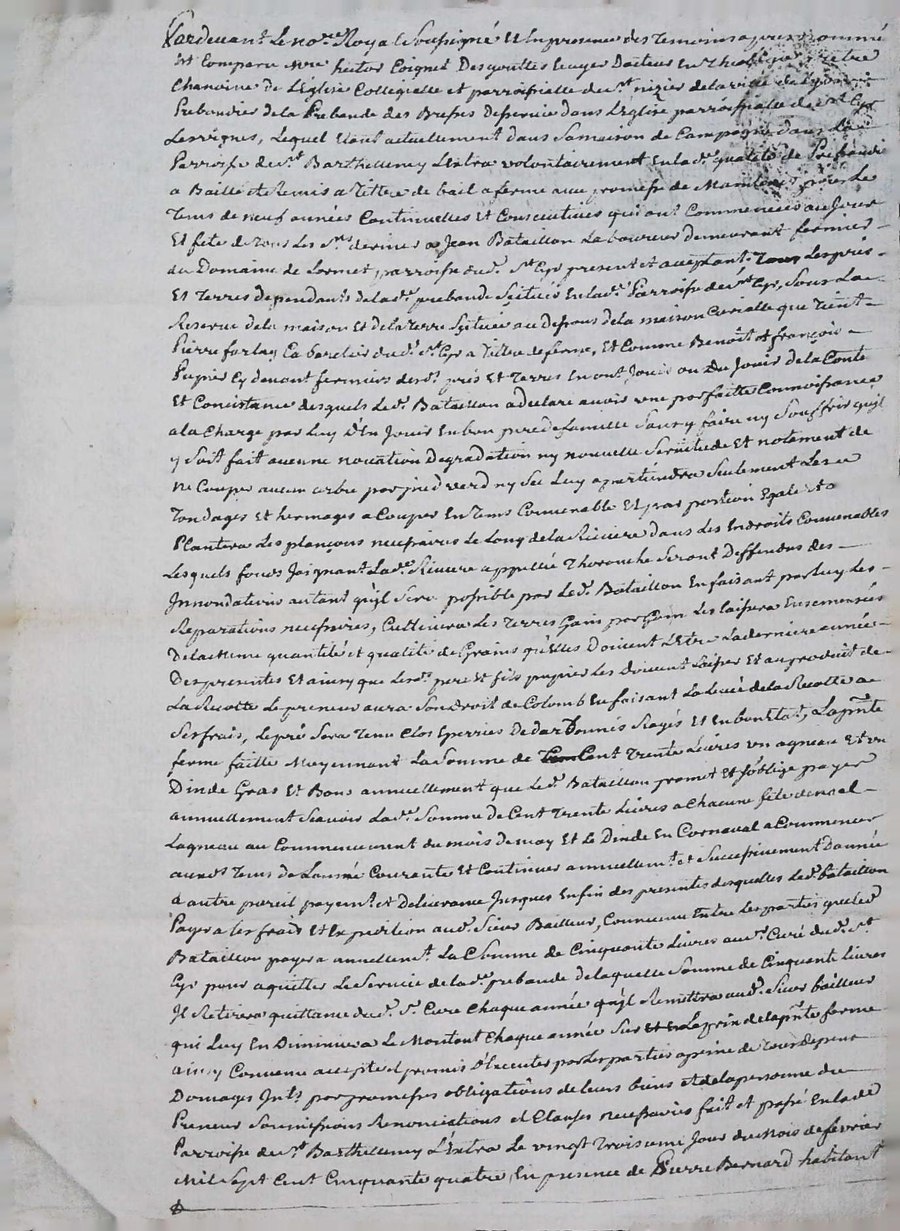 Pardevant Le no.re Royal Soussigné Et En presence des temoins apres nommé
Est Comparu M.re hector Coignet Desgouttes Ecuyer Docteur En Theologie Pretre
Chanoine de L'Eglise Collegialle et parroissialle de S.t nizier de la ville de Lyon
Prebandier de la Prebande des Brosses Deservie dans L'Eglise parroissialle de S.t Cyr
Les vignes, Lequel Etant actuellement dans Sa maison de Campagne dans La
Parroisse de S.t Barthellemy Lestra volontairement En lad.e qualité de Prebandier
a Baillé et Remis a Tittre de bail a ferme avec promesse de Maintenir pour Le
Tems de neuf années Continuelles Et Consecutives qui ont Commencées au Jour
Et fete de Tous Les S.ts dernier a Jean Bataillon Laboureur demeurant fermier
du Domaine de Lormet, parroisse du d. S.t Cyr present et acceptant. Tous Les prés
Et Terres dependants de lad.e prebande Scituée En lad.e Parroisse de S.t Cyr, Sous La
Reserve de la maison Et de la terre Scituée au dessous de la maison Curialle que Tient
Pierre Cabaretier du d. S.t Cyr a Tittre de ferme, Et Comme Benoît et françois
Pupier Cy devant fermiers desd. prés Et Terres En ont Jouis ou Du Jouir de la Conte
Et Concistance desquels Led. Bataillon a declaré avoir une parfaite Connoissance
a la Charge par Luy D'En Jouir En bon pere de famille Sans y faire ny Souffrir qu'il
y Soit fait aucune novation Degradation ny nouvelle Servitude Et notament de
ne Couper aucun arbre par pied verd ny Sec Luy apartiendra Seulement Les
Tondages Et hermages a Couper En Tems Convenable Et par portion Egale Et
Plantera Les plançons necessaires Le Long de la Riviere dans Les Endroits Convenables
Lesquels fonds Joignant Lad.e Riviere appellée Thoranche Seront Deffendus des
Innondations autant qu'il Sera possible par Led. Bataillon En faisant par luy Les
Reparations necessaires, Cultivera Les Terres Gain par Gain Les laissera Ensemencées
De la meme quantité et qualité de Grains qu'elles Doivent L'Etre La derniere année
Des presentes Et ainsy que Lesd. pere Et fils pupier Les doivent Laisser Et au produit de
La Recotte Le preneur aura Son droit de Colomb En faisant La Levée de la Recotte a
Ses frais, Le pré Sera Tenu Clos Eperriés Dedardonnés Rayés Et En bon Etat, La p.nte
ferme faitte Moyennant La Somme de Cent Trente Livres un agneau Et un
Dinde Gras Et Bons annuellement que Led. Bataillon promet Et S'oblige payer
annuellement Scavoir Lad.e Somme de Cent Trente Livres a Chacune fete de noel
Lagneau au Commencement du mois de may Et Le Dinde En Carnaval a Commencer
auxd. Tems de L'année Courante Et Continuer annuellem.t et Successivement D'année
a autre pareil payem.t et Delivrance Jusques Enfin des presentes desquelles Led. bataillon
Payera Les frais Et Expedition aud. Sieur Bailleur, Convenu Entre Les parties que Led.
Bataillon payera annuellem.t La Somme de Cinquante Livres au S.r Curé dud. S.t
Cyr pour aquitter Le Service de lad.e prebande De laquelle Somme de Cinquante Livres
Il Retirera quittance dud. S.r Curé Chaque année qu'il Remettra aud. Sieur bailleur
qui Luy En Diminuera Le Montant Chaque année Sur Le prix de la p.nte ferme
ainsy Convenu accepté et promis D'Executer par Les parties a peine de Tous depens
Domages Int.s par promesses obligations de leurs biens et de la personne du
Preneur Soumissions Renonciations et Clauses necessaires fait et passé En lad.e
Parroisse de S.t Barthellemy L'Estra Le vingt Troisieme Jour du Mois de fevrier
Mil Sept Cent Cinquante quatre, En presence de Pierre Bernard habitant